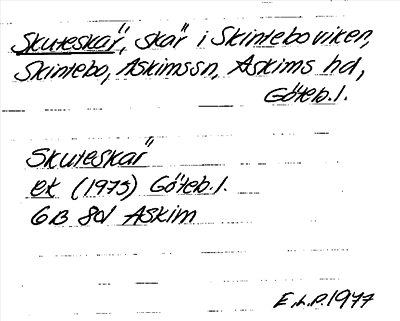 Skuteskär, skär i Skinteboviken,
Skintebo, Askimssn, Askims hd,
Göteb.l.
Skuteskär
ek (1975) Göteb.l.
6B 8d Askim
E.L.P.1977